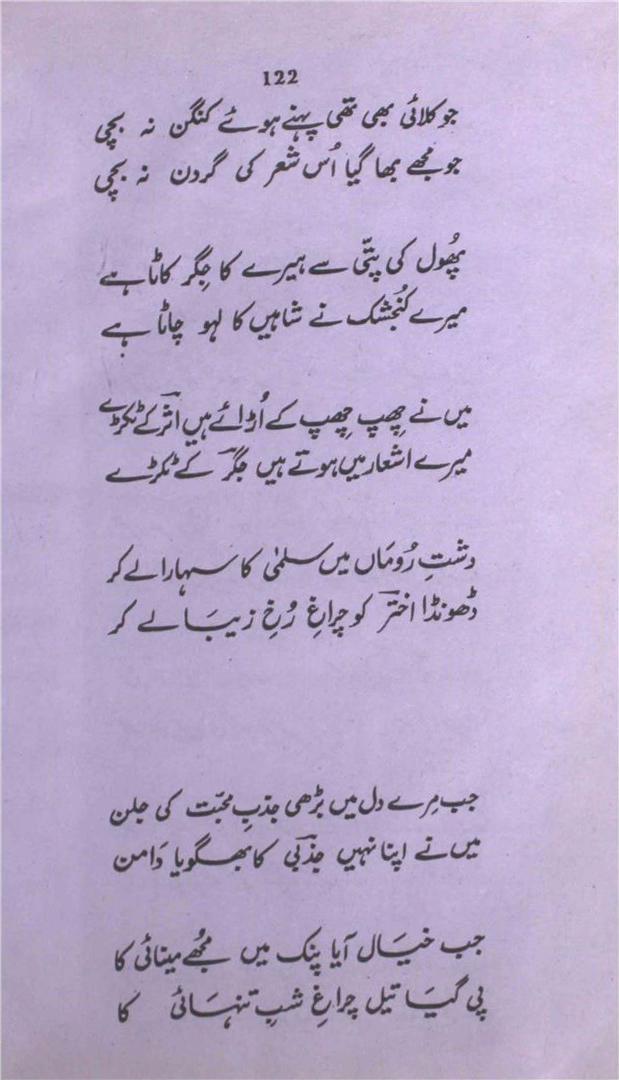 122
جو کلائی بھی تھی پہنے ہوئے کنگن نہ بچی
جو مجھے بھا گیا اُس شعر کی گردن نہ بچی
پھُول کی پتّی سے ہیرے کا جِگر کاٹا ہے
میرے کُنجشک نے شاہیں کا لہو چاٹا ہے
میں نے چھِپ چھِپ کے اُڑائے ہیں اثرؔ کے ٹکڑے
میرے اشعار میں ہوتے ہیں جگرؔ کے ٹکڑے
دشتِ رُومَاں میں سلمٰی کا سہارا لے کر
ڈھونڈا اخترؔ کو چراغِ رُخِ زیبَا لے کر
جب مِرے دل میں بڑھی جذبِ محبّت کی جلن
میں نے اپنا نہیں جذبیؔ کا بھگویا دَامن
جب خیَال آیا پنک میں مجُھے مینائی کا
پی گیَا تیل چراغِ شبِ تنہَائی کا